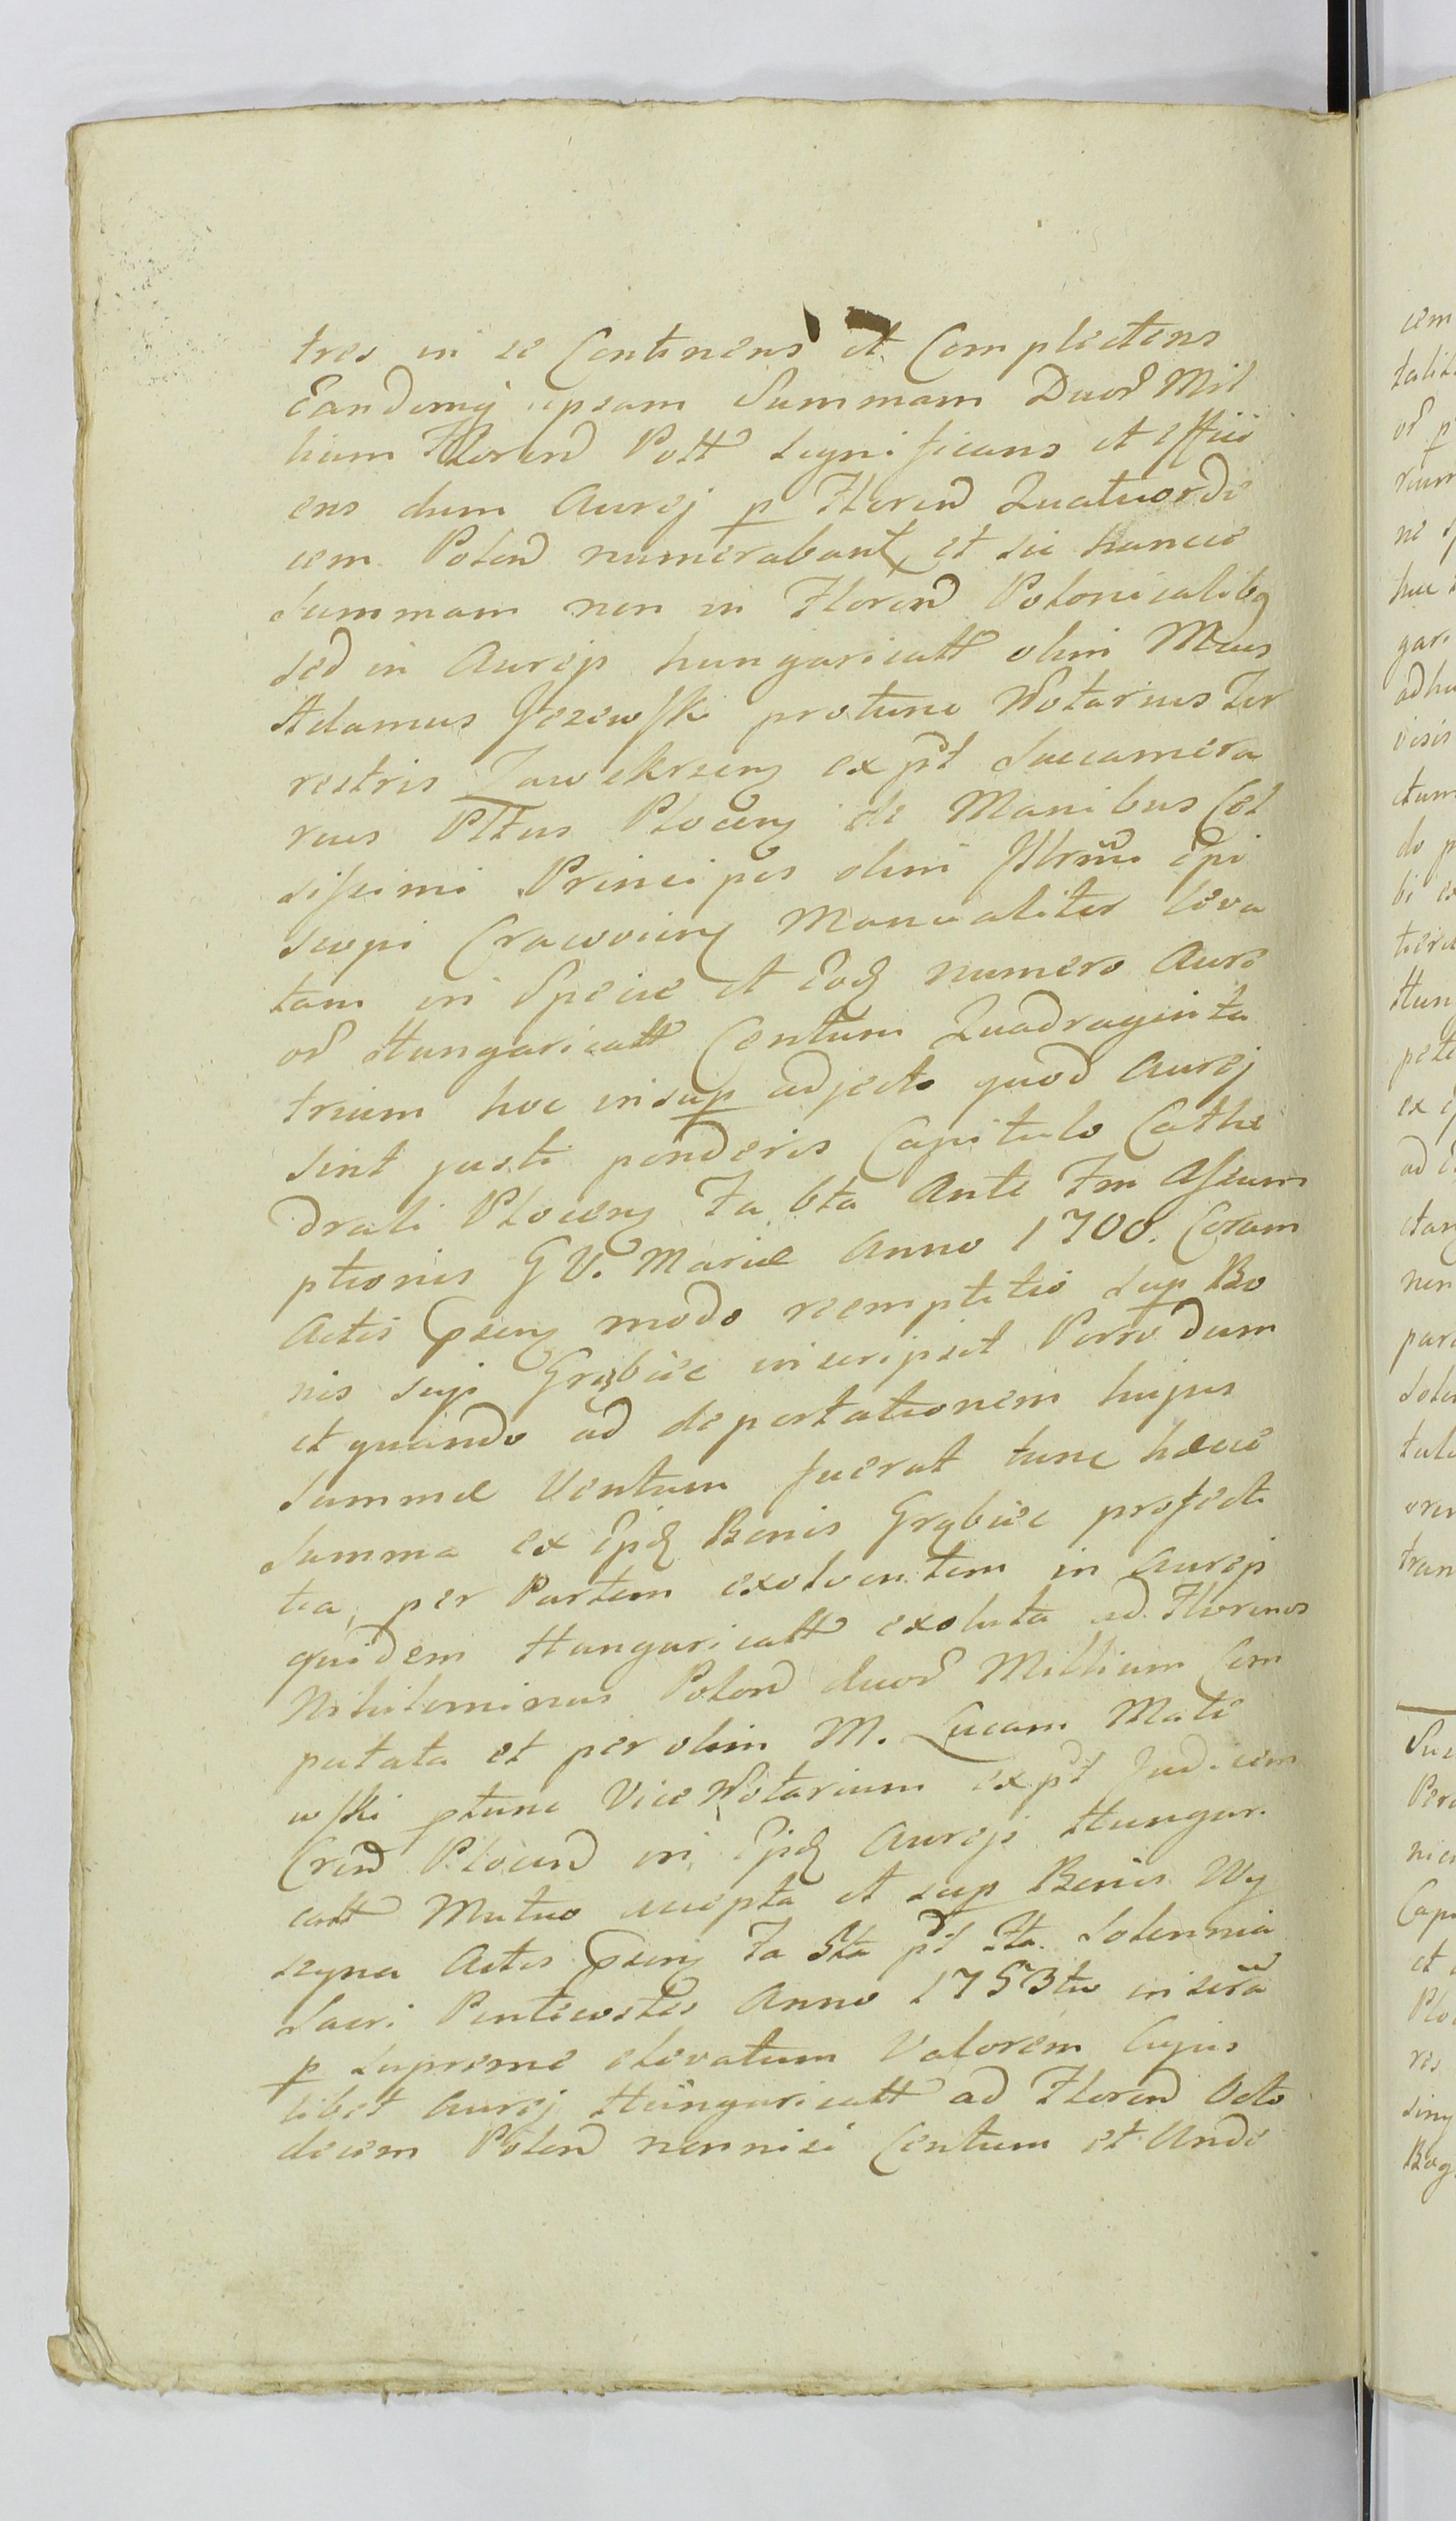 tres in se Continens et Complectens
Eandemq ipsam Summam Duor Mil
lium Floren Poll significans et effici
ens dum Aurej p Floren Quatuorde
cem Polon numerabant, et sic hancce
Summam non in Floren Polonicalibq
sed in Aurejs hungaricall olim Mcus
Adamus Jezewski protunc Notarius Ter
restris Zawskrzeng ex pt Succamera
rius Pltus Ploceng de Manibus Cel
sissimi Principis olim Illrmi Epi
scopi Cracovieng Manualiter leva
tam in Specie et Eodq numero Aure
or Hungaricall Centum Quadraginta
trium hoc insup adjecto quod Aurej
sint justi ponderis Capitulo Cathe
drali Ploceng Fa 6ta Ante Fm Assum
ptionis G V. Mariæ Anno 1700. Coram
Actis Pseng modo reemptitio Sup Bo
nis suis Grąbiec inscripsit Porro dum
et quando ad deportationem hujus
Summæ Ventum fuerat tunc hæcce
Summa ex Ijsdq Bonis Grąbiec profecti
tia, per Partem exolventem in Aurejs
quidem Hungaricall exoluta ad Florenos
Nihilominus Polon duor Millium Com
putata et per olim M. Lucam Mate
wski ptunc ViceNotarium ex pt Judicem
Cren Plocen in Ijsdq Aurejs Hungari
call Mutuo accepta et sup Bonis Wy
szyna Actis Pseng Fa 5ta pt Fta Solennia
Sacri Pentecostes Anno 1753tio inscra
p supreme elevatum Valorem Cujus
libet Aurej Hungaricall ad Floren Octo
decem Polon nonnisi Centum et Unde